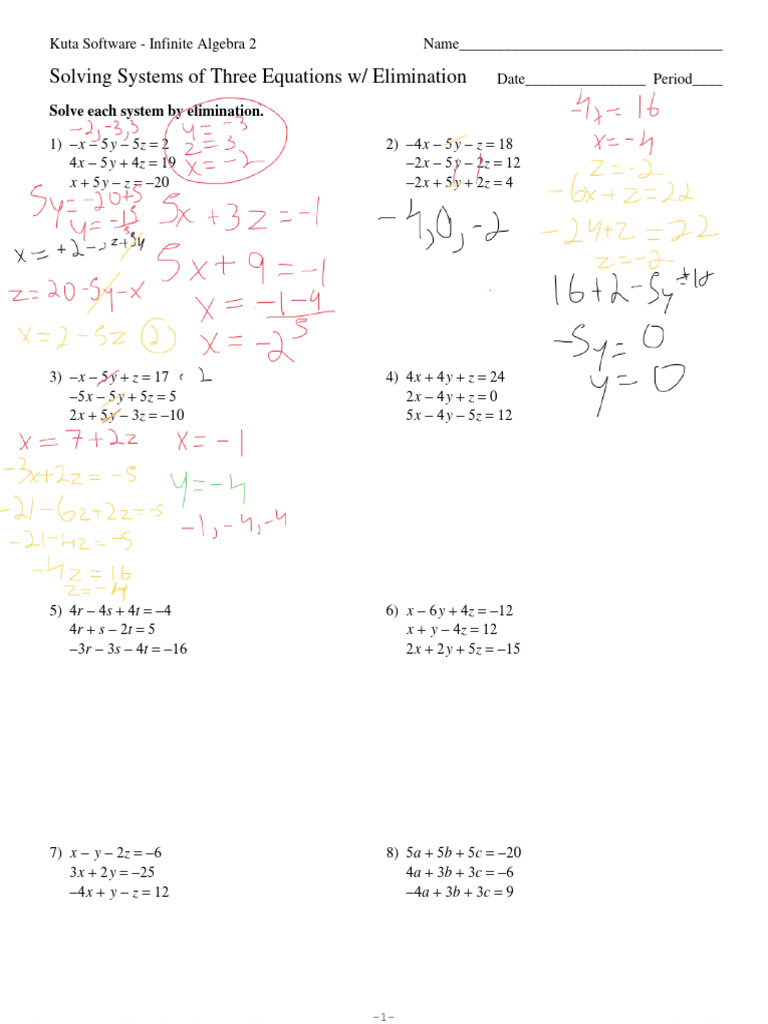 Kuta Software - Infinite Algebra 2 Name___________________________________
Solving Systems of Three Equations w/ Elimination Date________________ Period____
Solve each system by elimination.
-2,-3,3
y = -3
z = 3
x = -2
1) −x − 5y − 5z = 2
4x − 5y + 4z = 19
x + 5y − z = −20
5y = -20+5
y = -15/5
5x + 3z = -1
5x + 9 = -1
x = -1-9
5
x = -2
z = 20 - 5y - x
x = 2 - 5z (2)
-4x = 16
x = -4
2) −4x − 5y − z = 18
−2x − 5y − 2z = 12
−2x + 5y + 2z = 4
z = -2
-6x + z = 22
-24 + z = 22
z = -2
-4,0,-2
-5y = 0
y = 0
3) −x − 5y + z = 17
−5x − 5y + 5z = 5
2x + 5y − 3z = −10
x = 7 + 2z
x = -1
-3x + 2z = -5
y = -4
-21 - 6z + 2z = -5
-1,-4,-4
-21 - 4z = -5
-4z = 16
z = -4
4) 4x + 4y + z = 24
2x − 4y + z = 0
5x − 4y − 5z = 12
5) 4r − 4s + 4t = −4
4r + s − 2t = 5
−3r − 3s − 4t = −16
6) x − 6y + 4z = −12
x + y − 4z = 12
2x + 2y + 5z = −15
7) x − y − 2z = −6
3x + 2y = −25
−4x + y − z = 12
8) 5a + 5b + 5c = −20
4a + 3b + 3c = −6
−4a + 3b + 3c = 9
-1-